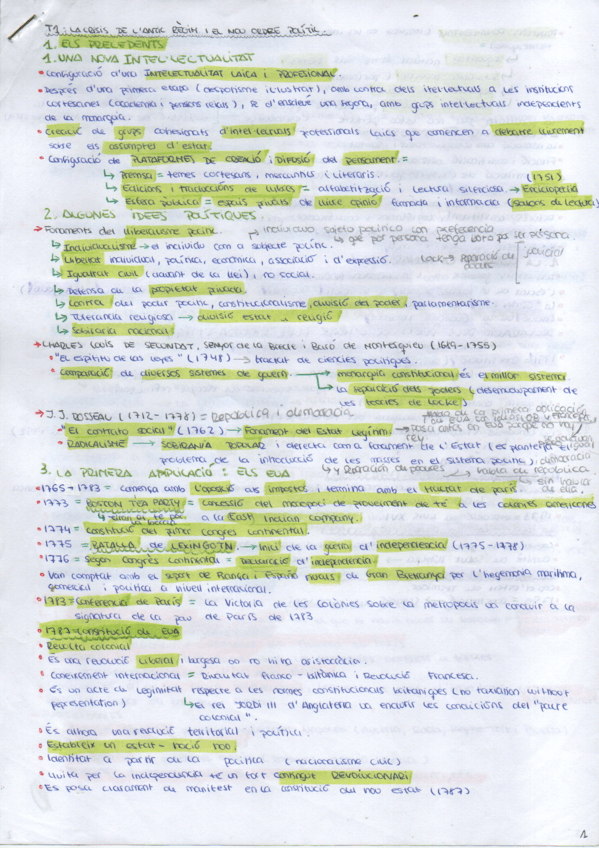 T1: LA CRISIS DE L'ANTIC RÈGIM I EL NOU ORDRE POLÍTIC.
1. ELS PRECEDENTS
1. UNA NOVA INTEL·LECTUALITAT
• Configuració d'una INTELECTUALITAT LAICA I PROFESIONAL.
• Després d'una primera etapa (despotisme il·lustrat), amb control dels intelectuals a les institucions
cortesanes (academia i pensions reials), es d'envolve una segona, amb grups intel·lectuals independents
de la monarquia.
• Creació de grups cohesionats d'intel·lectuals professionals laics que comencen a debatre lliurement
sobre els assumptes d'estat.
• Configuració de PLATAFORMES DE CREACIÓ I DIFUSIÓ del pensament =
↳ Premsa = temes cortesans, mercantils i literaris. (1751)
↳ Edicions i traduccions de llibres = alfabetització i lectura silenciosa → Enciclopedia
↳ Esfera pública = espais privats de lliure opinió formada i informada (salons de lectura)
2. ALGUNES IDEES POLÍTIQUES.
• Foraments del liberalisme polític.
→ individuo, sujeto político con preferencia
→ que por persona tenga voto por ser persona.
↳ Individualisme → el individu com a subjecte polític.
↳ Llibertat individual, política, econòmica, associació i d'expressió.
Lock → separació de poders
↳ Igualtat civil (davant de la llei), no social.
↳ Defensa de la propietat privada.
↳ Control del poder polític, constitucionalisme, divisió del poder, parlamentarisme.
↳ Tolerancia religiosa → divisió estat - religió
↳ Sobirania nacional.
→ CHARLES LOUIS DE SECONDAT, senyor de la Brede i Baró de Montesquieu (1689-1755)
• "El espíritu de las leyes" (1748) → tractat de ciencies polítiques.
• Comparació de diversos sistemes de govern → monarquia constitucional és el millor sistema
↳ la separació dels poders (desenvolupament de
les teories de Locke)
→ J.J. ROSSEAU (1712-1778) = República i democràcia
• "El contrato social" (1762) → Fonament del Estat Legítim
• RADICALISME → SOBIRANIA POPULAR i directa com a forament de l'Estat (es planteja el
problema de la introducció de les masses en el sistema polític)
↳ y separación de poderes → habla de república
3. LA PRIMERA APLICACIÓ: ELS EUA
• 1765-1783 = comença amb l'oposició als impostos i termina amb el tractat de parís.
• 1773 = BOSTON TEA PARTY = concessió del monopoli de proveïment de té a les colonies americanes
a la East Indian Company.
• 1774 = Constitució del primer congres continental.
• 1775 = BATALLA DE LEXINGOTN → inici de la guerra d'independencia (1775-1778)
• 1776 = Segon Congrés Continental = declaració d'independencia
• Van comptat amb el suport de França i España rivals de Gran Bretranya per l'hegemonia marítima,
comercial i política a nivell internacional.
• 1783 = Conferencia de París = La Victoria de les Colònies sobre la metropolis va concluir a la
signatura de la pau de París de 1783
• 1787 = constitució de EUA
• Revolta colonial
• És una revolució liberal i burgesa on no hi ha aristocràcia.
• Coneixement internacional = Rivalitat franco-britànica i Revolució Francesa.
• És un acte de legimitat respecte a les normes constitucionals britaniques (no taxation without
representation) ↳ el rei JORDI III d'Anglaterra va encunir les condicions del "pacte
colonial".
• És alhora una revolució territorial i política.
• Estableix un estat-nació nou.
• Identitat a partir de la política (nacionalisme cívic)
• Lluita per la independencia té un fort contingut REVOLUCIONARI
• Es posa clarament de manifest en la constitució del nou estat (1787)
1